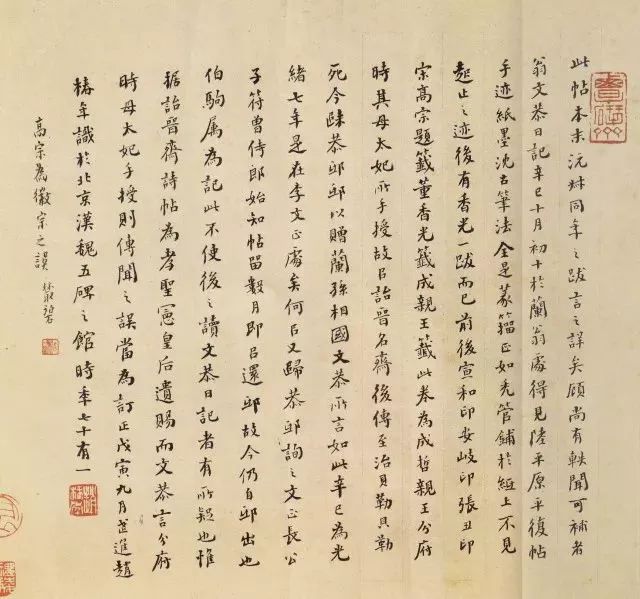 此帖本末沅叔同年之跋言之詳矣顧尚有軼聞可補者
翁文恭日記辛巳十月初十於蘭翁處得見陸平原平復帖
手迹紙墨沈古筆法全是篆籀正如禿管鋪於紙上不見
起止之迹後有香光一跋而已前後宣和印安岐印張丑印
宗高宗題籤董香光籤成親王籤此卷為成哲親王分府
時其母太妃所手授故以詒晉名齋後傳至治貝勒貝勒
死今歸恭邸邸以贈蘭孫相國文恭所言如此辛巳為光
緒七年是在李文正處矣何以又歸恭邸詢之文正長公
子符曾侍郎始知帖留數月即以還邸故今仍自邸出也
伯駒屬為記此不使後之讀文恭日記者有所疑也惟
据詒晉齋詩帖為孝聖憲皇后遺賜而文恭言分府
時母太妃手授則傳聞之誤當為訂正戊寅九月武進趙
椿年識於北京漢魏五碑之館時年七十有一
高宗為徽宗之誤